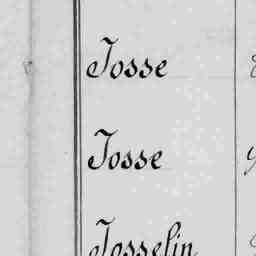 Josse
Josse
Josselin